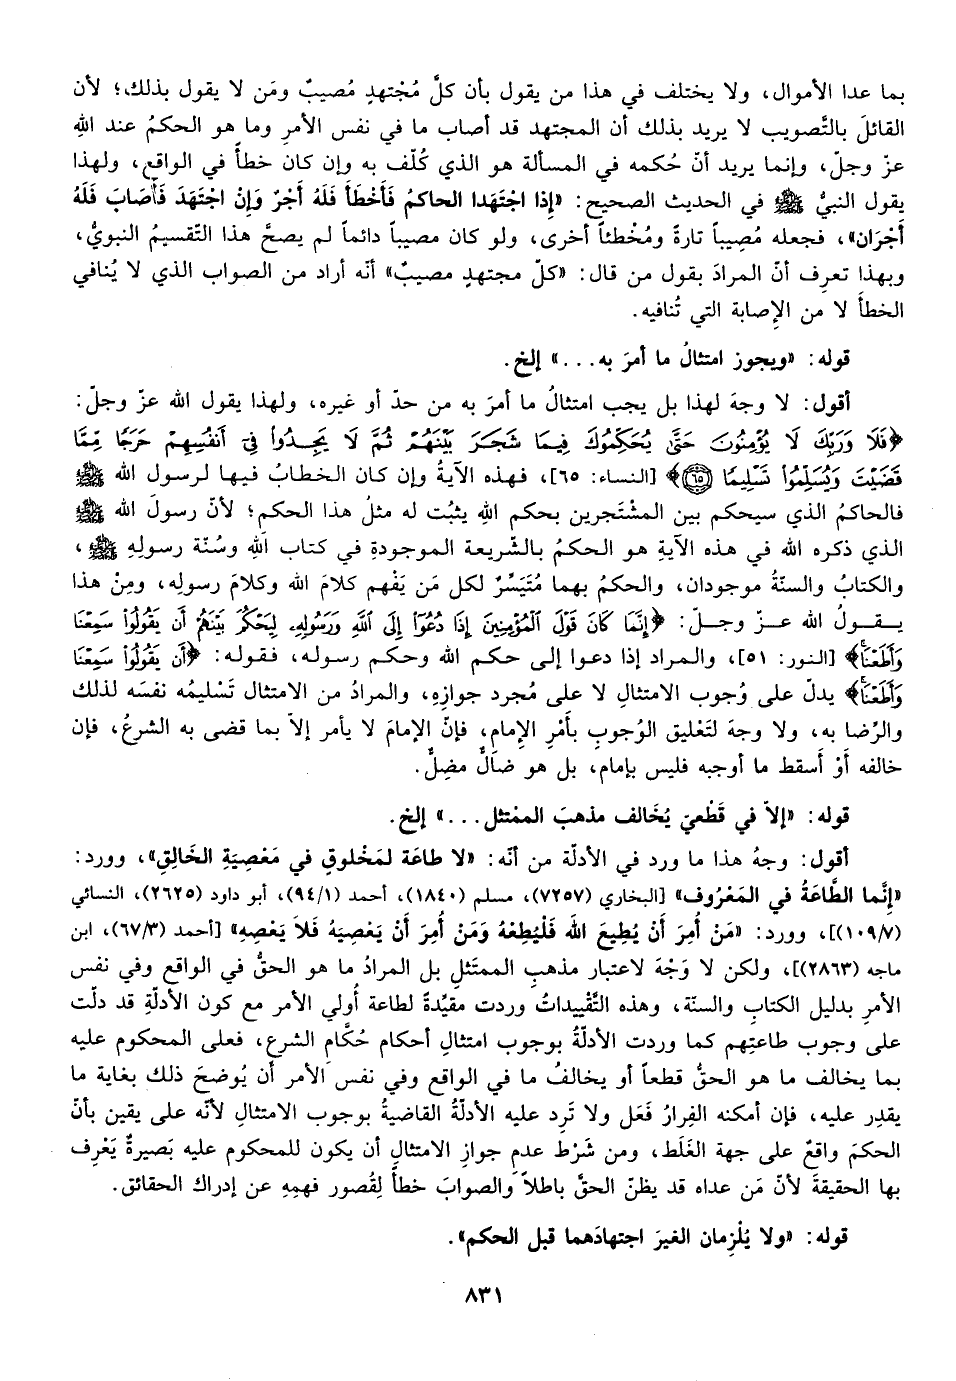 بما عدا الأموال، ولا يختلف في هذا من يقول بأن كلَّ مُجْتهدٍ مُصيبٌ ومَن لا يقول بذلك؛ لأن
القائلَ بالتَّصويب لا يريد بذلك أن المجتهد قد أصاب ما في نفس الأمرِ وما هو الحكمُ عند اللهِ
عزّ وجلّ، وإنما يريد أنّ حُكمه في المسألة هو الذي كُلّف به وإن كان خطأً في الواقع، ولهذا
يقول النبيُّ ﷺ في الحديث الصحيح: «إذا اجتَهَدا الحاكمُ فَأخطَأَ فلَهُ أَجْرٌ وَإنْ اجتَهَدَ فَأَصَابَ فَلَهُ
أجْرَان»، فجعله مُصِيباً تارةً ومُخْطئاً أخرى، ولو كان مصيباً دائماً لم يصحَّ هذا التَّقسيمُ النبويُّ،
وبهذا تعرِف أنّ المرادَ بقول من قال: «كلّ مجتهدٍ مصيبٌ» أنّه أراد من الصواب الذي لا يُنافي
الخطأَ لا من الإصابة التي تُنافيه.
قوله: «ويجوز امتثالُ ما أمرَ به...» إلخ.
أقول: لا وجهَ لهذا بل يجب امتثالُ ما أمرَ به من حدّ أو غيره، ولهذا يقول الله عزّ وجلّ:
﴿فَلَا وَرَبِّكَ لَا يُؤْمِنُونَ حَتَّىٰ يُحَكِّمُوكَ فِيمَا شَجَرَ بَيْنَهُمْ ثُمَّ لَا يَجِدُوا۟ فِىٓ أَنفُسِهِمْ حَرَجًا مِّمَّا
قَضَيْتَ وَيُسَلِّمُوا۟ تَسْلِيمًا ۝٦٥﴾ [النساء: ٦٥]، فهذه الآيةُ وإن كان الخطابُ فيها لرسول الله ﷺ
فالحاكمُ الذي سيحكم بين المشْتَجرين بحكم اللهِ يثبُت له مثلُ هذا الحكم؛ لأنّ رسولَ الله ﷺ
الذي ذكره الله في هذه الآيةِ هو الحكمُ بالشّريعة الموجودةِ في كتاب اللهِ وسُنّة رسولِهِ ﷺ،
والكتابُ والسنّةُ موجودان، والحكمُ بهما مُتَيَسِّرٌ لكل مَن يَفْهم كلامَ الله وكلامَ رسولِه، ومِنْ هذا
يقولُ الله عزّ وجلّ: ﴿إِنَّمَا كَانَ قَوْلَ ٱلْمُؤْمِنِينَ إِذَا دُعُوٓا۟ إِلَى ٱللَّهِ وَرَسُولِهِۦ لِيَحْكُمَ بَيْنَهُمْ أَن يَقُولُوا۟ سَمِعْنَا
وَأَطَعْنَا﴾ [النور: ٥١]، والمراد إذا دعوا إلى حكم الله وحكم رسوله، فقوله: ﴿أَن يَقُولُوا۟ سَمِعْنَا
وَأَطَعْنَا﴾ يدلّ على وُجوب الامتثالِ لا على مُجرد جوازِهِ، والمرادُ من الامتثال تَسْليمُه نفسَه لذلك
والرِّضا به، ولا وجهَ لتَعْليق الوُجوبِ بأَمْرِ الإمام، فإنّ الإمامَ لا يأمر إلاّ بما قضى به الشرعُ، فإن
خالفه أَوْ أَسقط ما أوجبه فليس بإمام، بل هو ضالٌّ مضِلٌّ.
قوله: «إلاّ في قَطْعيّ يُخَالف مذهبَ الممْتثل...» إلخ.
أقول: وجهُ هذا ما ورد في الأدلّة من أنّه: «لا طاعَة لمَخْلوقٍ في مَعْصِيَةِ الخَالِقِ»، وورد:
«إنَّما الطَّاعَةُ في المَعْرُوف» [البخاري (٧٢٥٧)، مسلم (١٨٤٠)، أحمد (٩٤/١)، أبو داود (٢٦٢٥)، النسائي
(١٠٩/٧)]، وورد: «مَنْ أُمِرَ أَنْ يُطِيعَ الله فَلْيُطِعْهُ وَمَنْ أُمِرَ أَنْ يَعْصِيَهُ فَلاَ يَعْصِهِ» [أحمد (٦٧/٣)، ابن
ماجه (٢٨٦٣)]، ولكن لا وَجْهَ لاعتبار مذهبِ الممتَثلِ بل المرادُ ما هو الحقُّ في الواقع وفي نفس
الأمرِ بدليل الكتابِ والسنة، وهذه التَّقْييداتُ وردت مقيّدةً لطاعة أُولي الأمر مع كون الأدلّةِ قد دلّت
على وجوب طاعتِهم كما وردت الأدلّةُ بوجوب امتثالِ أحكام حُكَّامِ الشرع، فعلى المحكوم عليه
بما يخالف ما هو الحقُّ قطعاً أو يخالفُ ما في الواقع وفي نفسِ الأمر أن يُوضحَ ذلك بغاية ما
يقدِر عليه، فإن أمكنه الفِرارُ فَعَل ولا تَرِد عليه الأدلّةُ القاضيةُ بوجوب الامتثالِ لأنّه على يقين بأنّ
الحكمَ واقعٌ على جهة الغَلَط، ومن شَرْط عدمِ جوازِ الامتثالِ أن يكون للمحكوم عليه بَصيرةٌ يَعْرِف
بها الحقيقةَ لأنّ مَن عداه قد يظنّ الحقَّ باطلاً والصوابَ خطأً لِقُصور فهمِهِ عن إدراك الحقائق.
قوله: «ولا يُلْزِمان الغيرَ اجتهادَهما قبل الحكم».
٨٣١